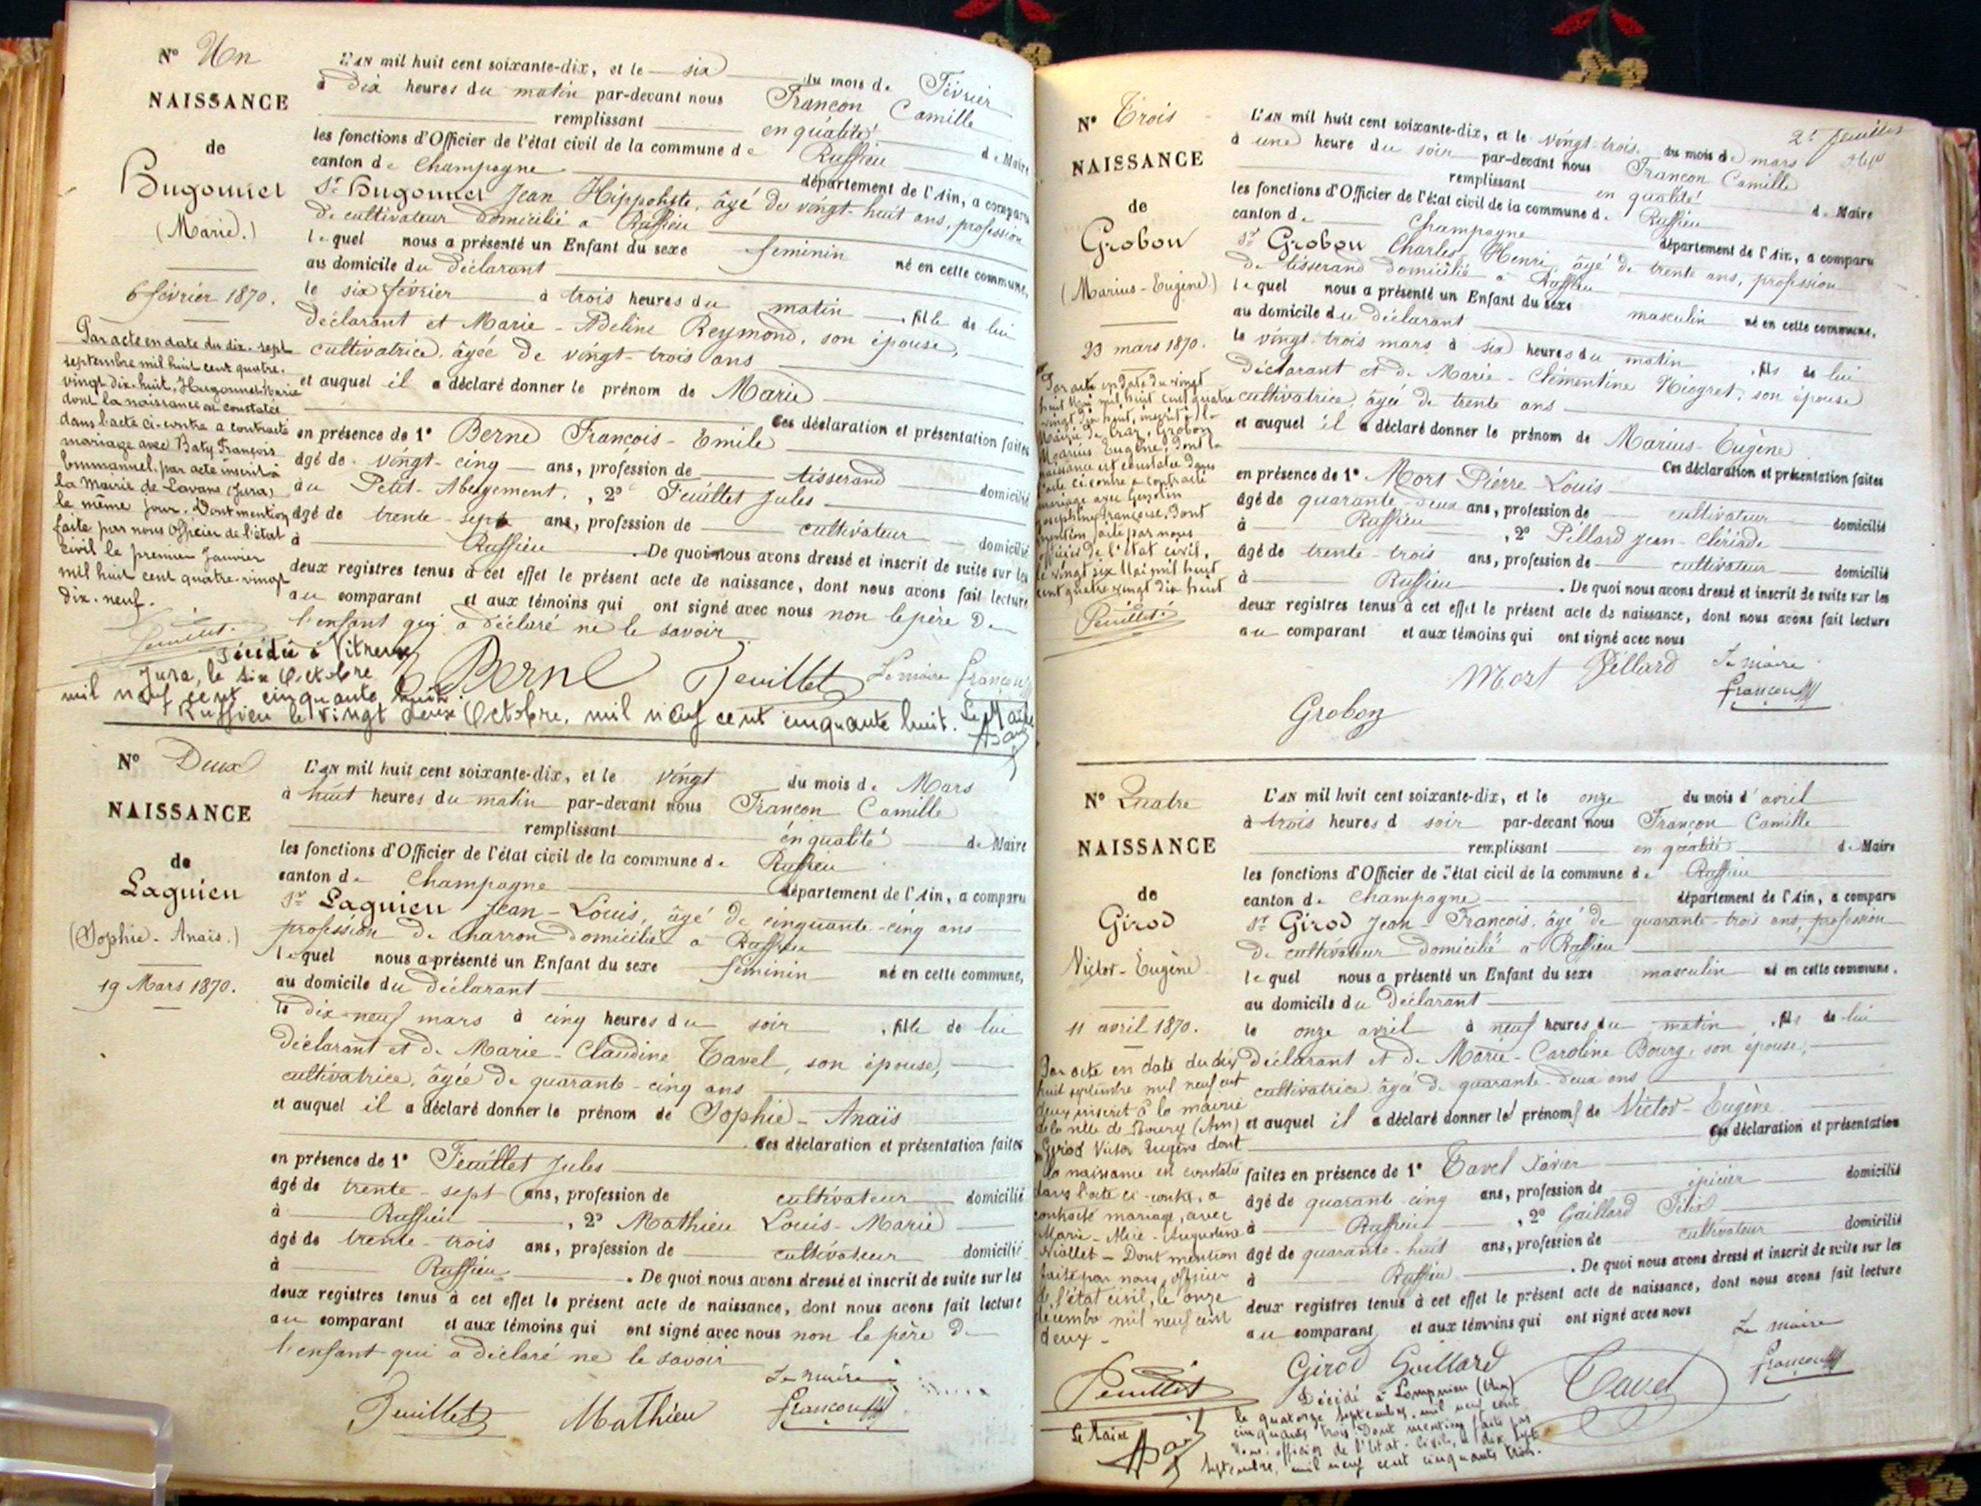 N° Un
NAISSANCE
de
Hugonnet
(Marie.)
6 février 1870.
Par acte en date du dix-sept
septembre mil huit cent quatre-
vingt dix-huit, Hugonnet Marie
dont la naissance est constatée
dans l'acte ci-contre a contracté
mariage avec Baty François
Emmanuel, par acte inscrit à
la Mairie de Lavans (Jura)
le même jour. Dont mention
faite par nous Officier de l'état
civil le premier Janvier
mil huit cent quatre-vingt
dix-neuf.
Feuillet.
L'AN mil huit cent soixante-dix, et le six du mois de Février
à dix heures du matin par-devant nous Francon Camille
remplissant en qualité de Maire
les fonctions d'Officier de l'état civil de la commune de Ruffieu
canton de Champagne département de l'Ain, a comparu
Sr Hugonnet Jean Hippolyte, âgé de vingt-huit ans, profession
de cultivateur domicilié à Ruffieu
lequel nous a présenté un Enfant du sexe féminin né en cette commune,
au domicile du déclarant
le six février à trois heures du matin, fille de lui
déclarant et Marie-Adeline Reymond, son épouse,
cultivatrice, âgée de vingt-trois ans
et auquel il a déclaré donner le prénom de Marie
Ces déclaration et présentation faites
en présence de 1° Berne François-Emile
âgé de vingt-cinq ans, profession de tisserand domicilié
au Petit-Abergement, 2° Feuillet Jules
âgé de trente-sept ans, profession de cultivateur domicilié
à Ruffieu. De quoi nous avons dressé et inscrit de suite sur les
deux registres tenus à cet effet le présent acte de naissance, dont nous avons fait lecture
au comparant et aux témoins qui ont signé avec nous non le père de
l'enfant qui a déclaré ne le savoir
Berne Feuillet Le maire Francon
Décédée à Vitreux
Jura, le six Octobre
mil neuf cent cinquante huit.
Ruffieu le vingt deux Octobre, mil neuf cent cinquante huit. Le Maire
N° Deux
NAISSANCE
de
Laguieu
(Sophie-Anaïs.)
19 Mars 1870.
L'AN mil huit cent soixante-dix, et le vingt du mois de Mars
à huit heures du matin par-devant nous Francon Camille
remplissant en qualité de Maire
les fonctions d'Officier de l'état civil de la commune de Ruffieu
canton de Champagne département de l'Ain, a comparu
Sr Laguieu Jean-Louis, âgé de cinquante-cinq ans
profession de charron domicilié à Ruffieu
lequel nous a présenté un Enfant du sexe féminin né en cette commune,
au domicile du déclarant
le dix-neuf mars à cinq heures du soir, fille de lui
déclarant et de Marie-Claudine Tavel, son épouse,
cultivatrice, âgée de quarante-cinq ans
et auquel il a déclaré donner le prénom de Sophie-Anaïs
Ces déclaration et présentation faites
en présence de 1° Feuillet Jules
âgé de trente-sept ans, profession de cultivateur domicilié
à Ruffieu, 2° Mathieu Louis-Marie
âgé de trente-trois ans, profession de cultivateur domicilié
à Ruffieu. De quoi nous avons dressé et inscrit de suite sur les
deux registres tenus à cet effet le présent acte de naissance, dont nous avons fait lecture
au comparant et aux témoins qui ont signé avec nous non le père de
l'enfant qui a déclaré ne le savoir
Le maire
Feuillet Mathieu Francon
2e feuillet
N° Trois
NAISSANCE
de
Grobon
(Marius-Eugène)
23 mars 1870.
Par acte en date du vingt
huit Mai mil huit cent quatre
vingt dix huit, inscrit à la
Mairie de Grobon
Marius Eugène, dont la
naissance est constatée dans
l'acte ci contre a contracté
mariage avec
Joséphine Françoise, Dont
mention faite par nous
officier de l'état civil,
le vingt six Mai mil huit
cent quatre vingt dix huit
Feuillet
L'AN mil huit cent soixante-dix, et le vingt-trois du mois de mars
à une heure du soir par-devant nous Francon Camille
remplissant en qualité de Maire
les fonctions d'Officier de l'état civil de la commune de Ruffieu
canton de Champagne département de l'Ain, a comparu
Sr Grobon Charles Henri, âgé de trente ans, profession
de tisserand domicilié à Ruffieu
lequel nous a présenté un Enfant du sexe masculin né en cette commune,
au domicile du déclarant
le vingt-trois mars à six heures du matin, fils de lui
déclarant et de Marie-Clémentine Niogret, son épouse
cultivatrice, âgée de trente ans
et auquel il a déclaré donner le prénom de Marius-Eugène
Ces déclaration et présentation faites
en présence de 1° Mort Pierre Louis
âgé de quarante-deux ans, profession de cultivateur domicilié
à Ruffieu, 2° Pillard Jean-Clériade
âgé de trente-trois ans, profession de cultivateur domicilié
à Ruffieu. De quoi nous avons dressé et inscrit de suite sur les
deux registres tenus à cet effet le présent acte de naissance, dont nous avons fait lecture
au comparant et aux témoins qui ont signé avec nous
Mort Pillard Le maire
Francon
Grobon
N° Quatre
NAISSANCE
de
Girod
Victor-Eugène
11 avril 1870.
Par acte en date du dix
huit septembre mil neuf cent
deux inscrit à la mairie
de la ville de Bourg (Ain)
Girod Victor Eugène dont
la naissance est constatée
dans l'acte ci-contre, a
contracté mariage, avec
Marie-Alice-Augustine
Niollet - Dont mention
faite par nous, officier
de l'état civil, le onze
décembre mil neuf cent
deux -
Feuillet
L'AN mil huit cent soixante-dix, et le onze du mois d'avril
à trois heures du soir par-devant nous Francon Camille
remplissant en qualité de Maire
les fonctions d'Officier de l'état civil de la commune de Ruffieu
canton de Champagne département de l'Ain, a comparu
Sr Girod Jean-François, âgé de quarante-trois ans, profession
de cultivateur domicilié à Ruffieu
lequel nous a présenté un Enfant du sexe masculin né en cette commune,
au domicile du déclarant
le onze avril à neuf heures du matin, fils de lui
déclarant et de Marie-Caroline Bourg, son épouse,
cultivatrice âgée de quarante-deux ans
et auquel il a déclaré donner le prénom de Victor-Eugène
Ces déclaration et présentation
faites en présence de 1° Tavel Xavier
âgé de quarante cinq ans, profession de épicier domicilié
à Ruffieu, 2° Gaillard Félix
âgé de quarante-huit ans, profession de cultivateur domicilié
à Ruffieu. De quoi nous avons dressé et inscrit de suite sur les
deux registres tenus à cet effet le présent acte de naissance, dont nous avons fait lecture
au comparant et aux témoins qui ont signé avec nous
Le maire
Girod Gaillard Tavel Francon
Décédé à Lompnieu (Ain)
le quatorze septembre mil neuf cent
cinquante trois. Dont mention faite par
Nous officier de l'Etat-Civil, le dix sept
Septembre, mil neuf cent cinquante trois.
Le Maire